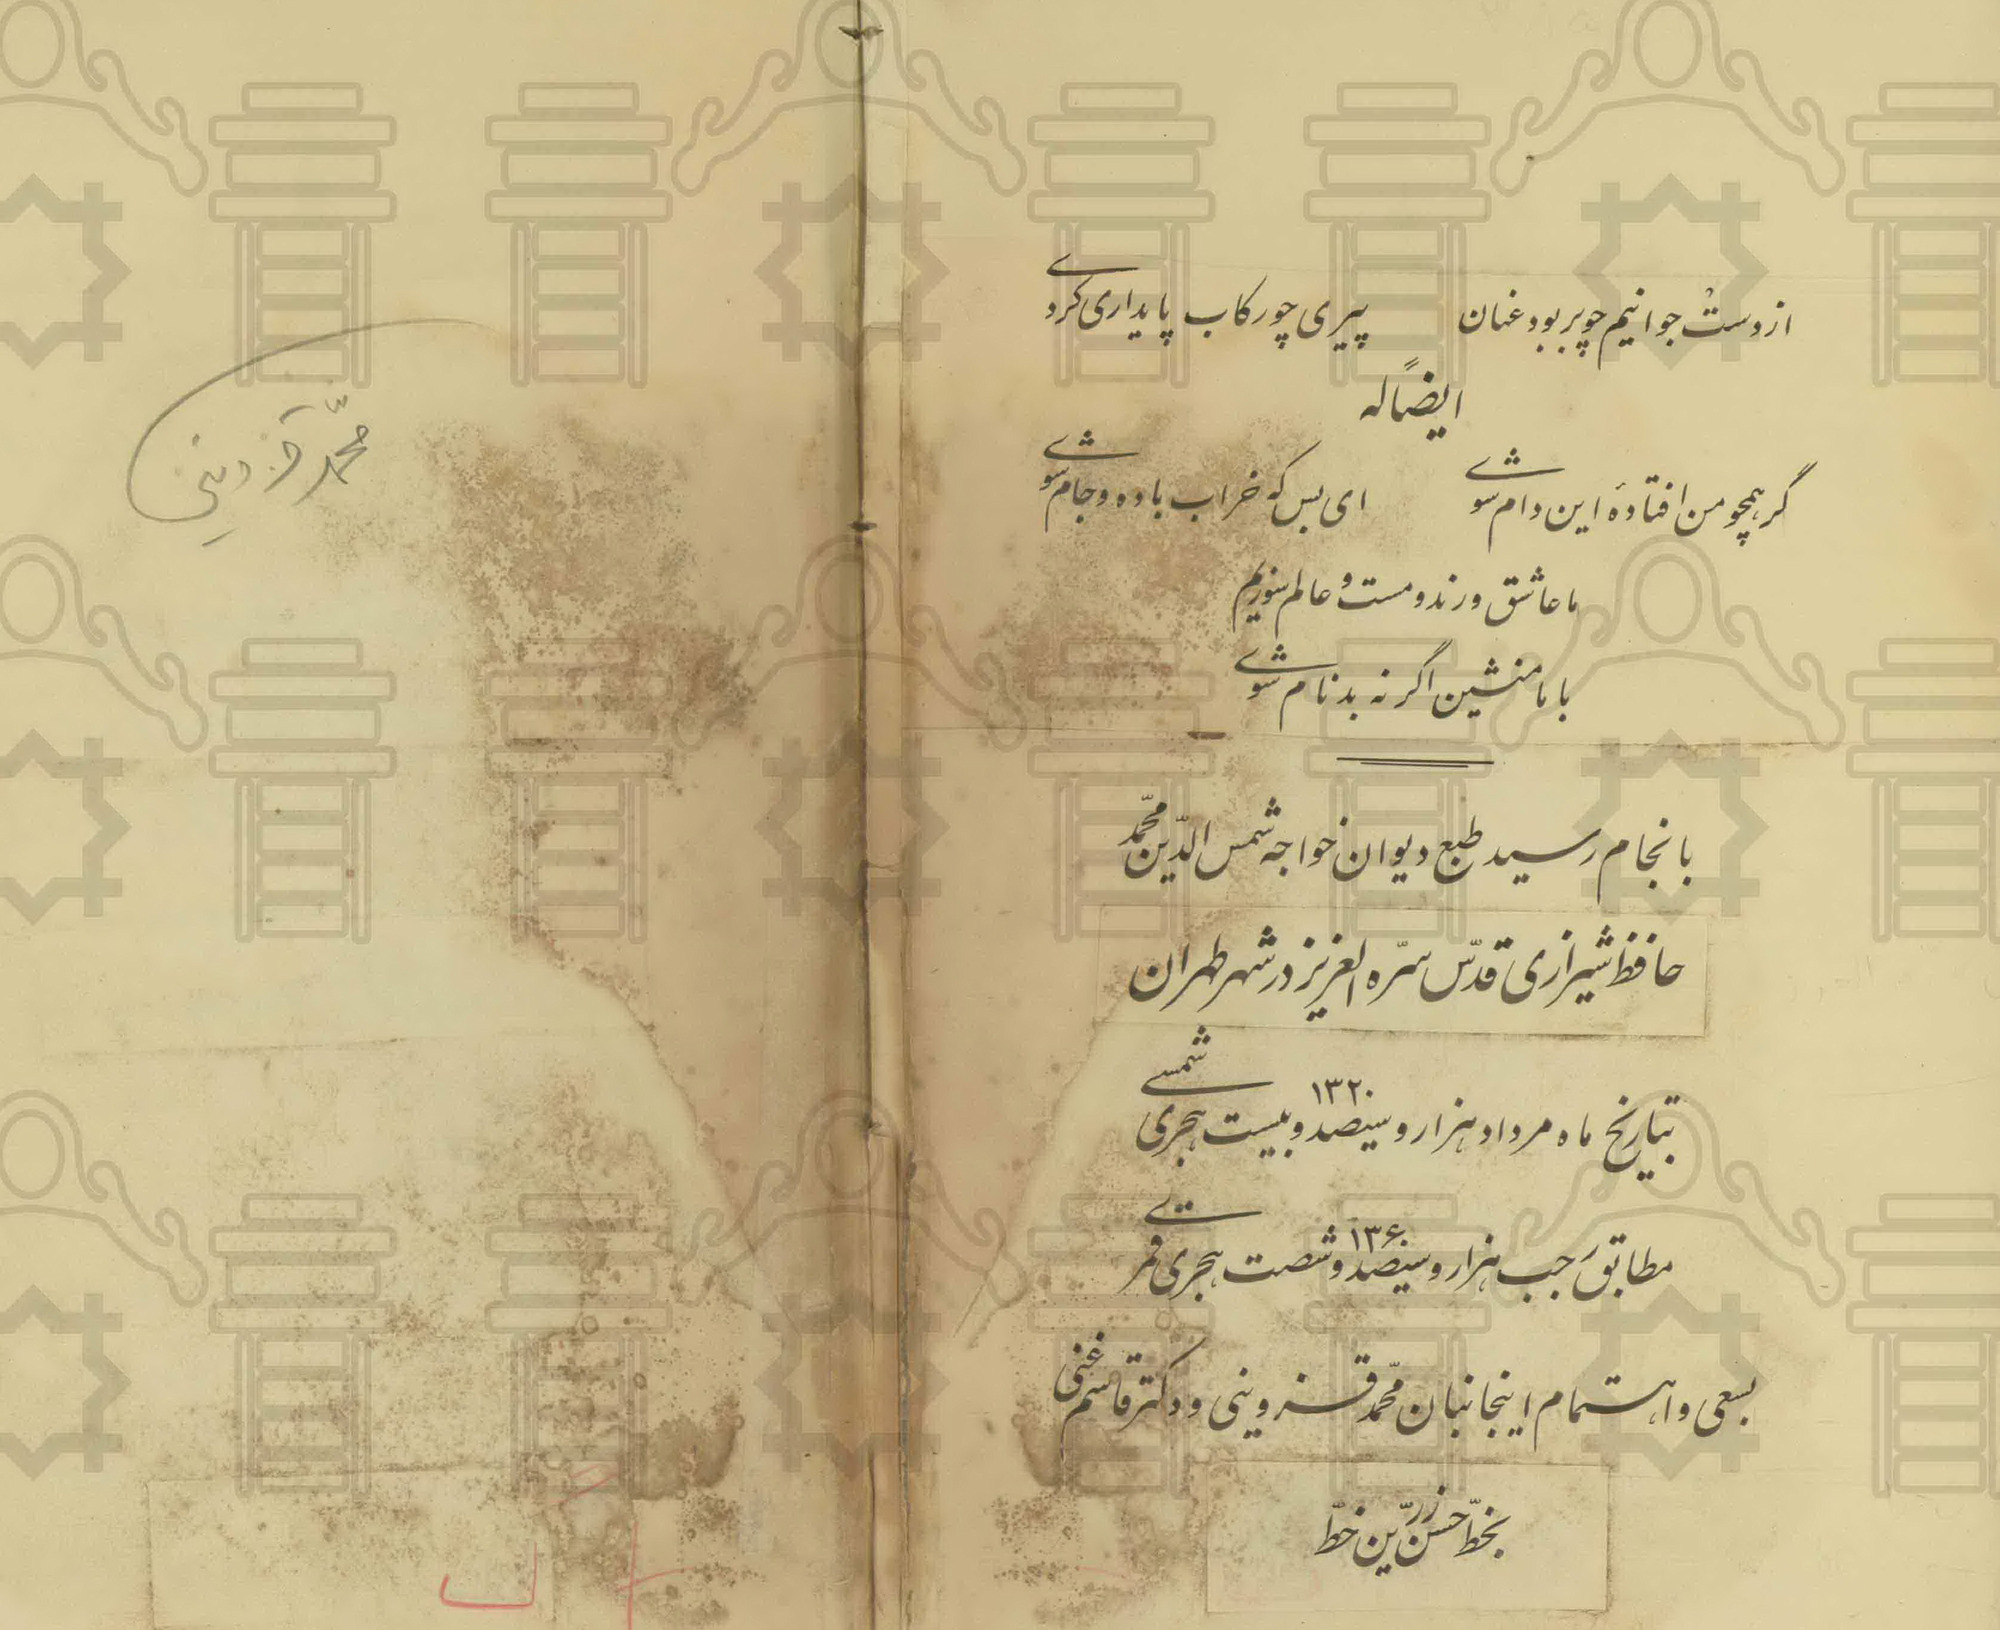 از دست جوانیم چو بربود عنان    پیری چو رکاب پایداری کردی
ایضاً له
گر همچو من افتادهٔ این دام شوی    ای بس که خراب باده و جام شوی
ما عاشق و رند و مست و عالم سوزیم
با ما منشین اگر نه بدنام شوی
بانجام رسید طبع دیوان خواجه شمس الدّین محمّد
حافظ شیرازی قدّس سرّه العزیز در شهر طهران
بتاریخ ماه مرداد هزار و سیصد و بیست ۱۳۲۰ هجری شمسی
مطابق رجب هزار و سیصد و شصت ۱۳۶۰ هجری قمری
بسعی و اهتمام اینجانبان محمّد قزوینی و دکتر قاسم غنی
بخطّ حسن زرّین خطّ
محمّد قزوینی